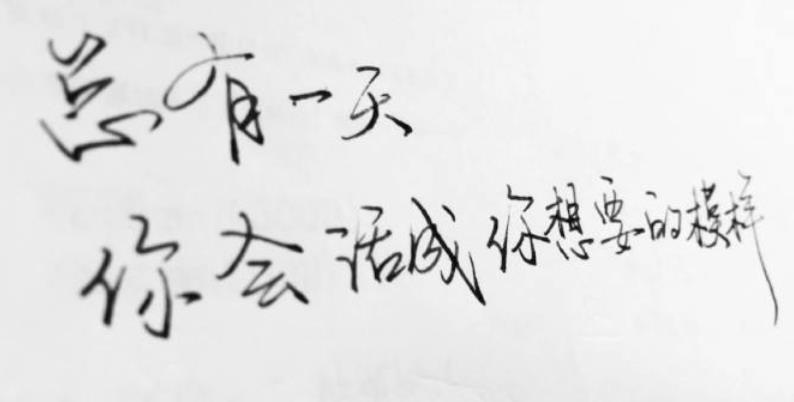 总有一天
你会活成你想要的模样